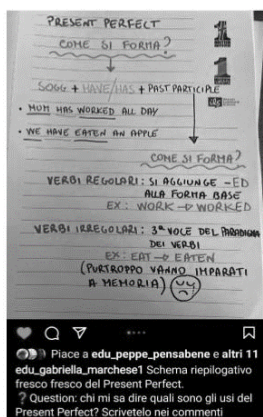 PRESENT PERFECT
COME SI FORMA?
SOGG + HAVE/HAS + PAST PARTICIPLE
• MUM HAS WORKED ALL DAY
• WE HAVE EATEN AN APPLE
COME SI FORMA?
VERBI REGOLARI: SI AGGIUNGE -ED
ALLA FORMA BASE
EX: WORK → WORKED
VERBI IRREGOLARI: 3ª VOCE DEL PARADIGMA
DEI VERBI
EX: EAT → EATEN
(PURTROPPO VANNO IMPARATI
A MEMORIA)
Piace a edu_peppe_pensabene e altri 11
edu_gabriella_marchese1 Schema riepilogativo
fresco fresco del Present Perfect.
❓Question: chi mi sa dire quali sono gli usi del
Present Perfect? Scrivetelo nei commenti